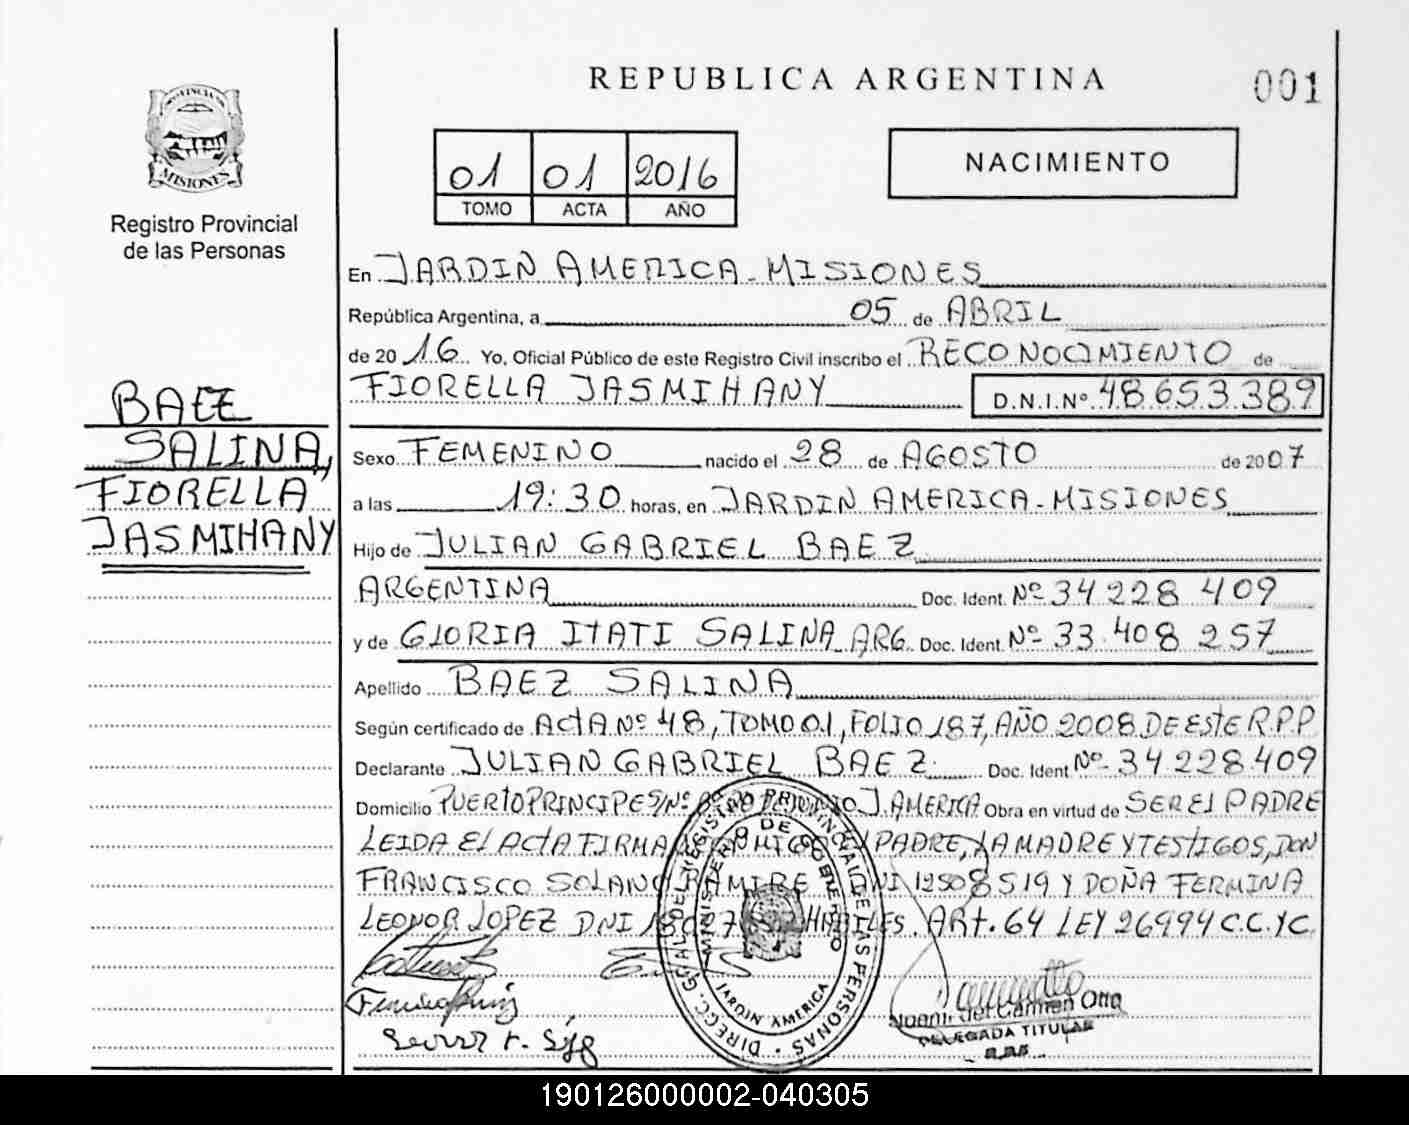 REPUBLICA ARGENTINA
001
PROVINCIA DE
MISIONES
Registro Provincial
de las Personas
01 01 2016
TOMO ACTA AÑO
NACIMIENTO
En JARDIN AMERICA - MISIONES
República Argentina, a 05 de ABRIL
de 2016 Yo, Oficial Público de este Registro Civil inscribo el RECONOCIMIENTO de
FIORELLA JASMIHANY D.N.I.Nº 48.653.389
BAEZ
SALINA,
FIORELLA
JASMIHANY
Sexo FEMENINO nacido el 28 de AGOSTO de 2007
a las 19:30 horas, en JARDIN AMERICA - MISIONES
Hijo de JULIAN GABRIEL BAEZ
ARGENTINA Doc. Ident. Nº 34 228 409
y de GLORIA ITATI SALINA ARG. Doc. Ident. Nº 33.408 257
Apellido BAEZ SALINA
Según certificado de ACTA Nº 48, TOMO 01, FOLIO 187, AÑO 2008 DE ESTE R.P.P
Declarante JULIAN GABRIEL BAEZ Doc. Ident Nº 34 228 409
Domicilio PUERTO PRINCIPE S/Nº J. AMERICA Obra en virtud de SER EL PADRE
LEIDA EL ACTA FIRMA PADRE, LA MADRE Y TESTIGOS, DON
FRANCISCO SOLANO RAMIRE DNI 12508519 Y DOÑA FERMINA
LEONOR LOPEZ DNI HABILES. ART. 64 LEY 26994 C.C.YC.
DIRECC. GRAL. DEL REGISTRO PROVINCIAL DE LAS PERSONAS
MINISTERIO DE GOBIERNO
JARDIN AMERICA
Noemi del Carmen Otto
DELEGADA TITULAR
190126000002-040305